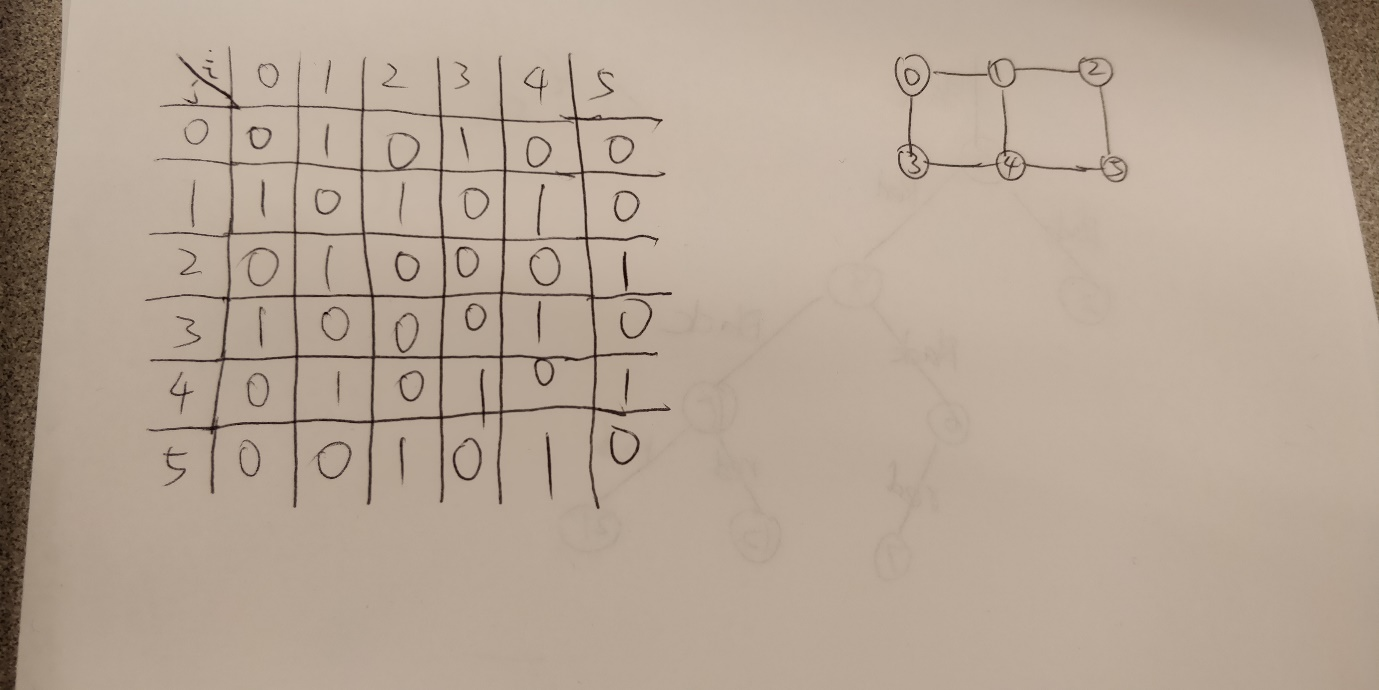 j i 0 1 2 3 4 5
0 0 1 0 1 0 0
1 1 0 1 0 1 0
2 0 1 0 0 0 1
3 1 0 0 0 1 0
4 0 1 0 1 0 1
5 0 0 1 0 1 0
0 1 2
3 4 5